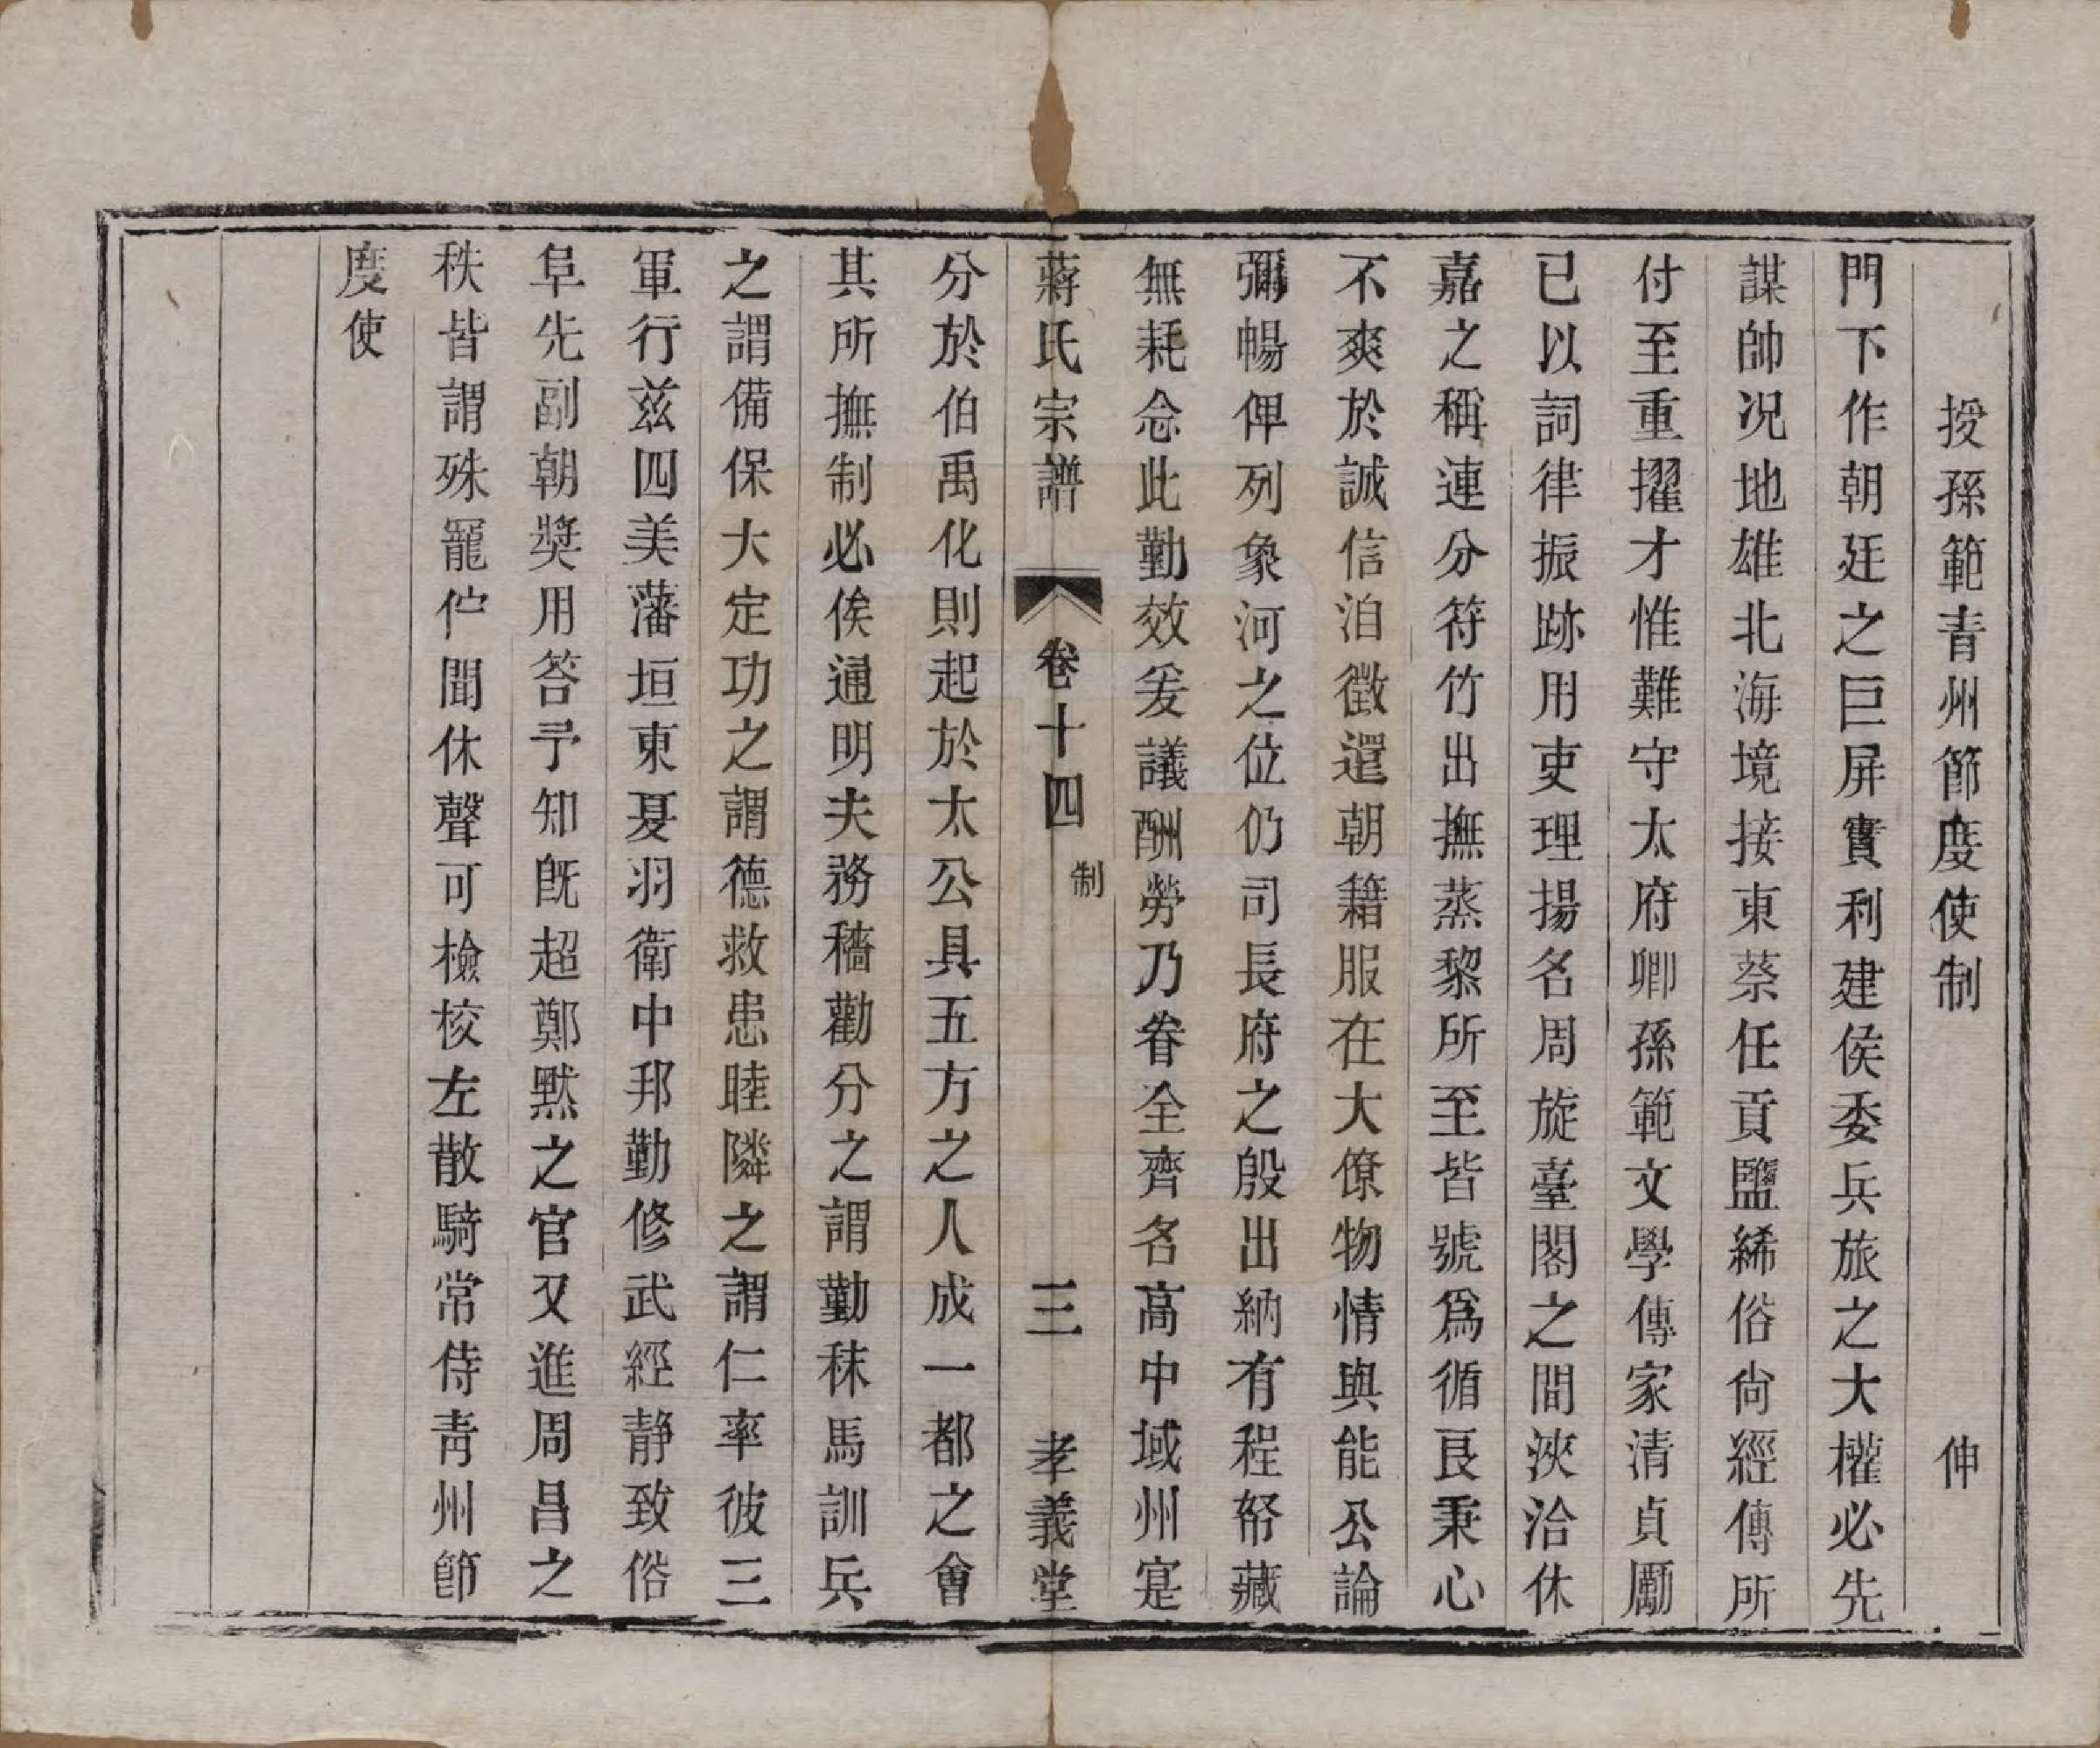 授孫範青州節度使制　伸
門下作朝廷之巨屏實利建侯委兵旅之大權必先
謀帥况地雄北海境接東蔡任貢鹽絺俗尙經傳所
付至重擢才惟難守太府卿孫範文學傳家清貞勵
已以詞律振跡用吏理揚名周旋臺閣之間浹洽休
嘉之稱連分符竹出撫蒸黎所至皆號爲循良秉心
不爽於誠信洎徵還朝籍服在大僚物情與能公論
彌暢俾列象河之位仍司長府之殷出納有程帑藏
無耗念此勤效爰議酬勞乃眷全齊名高中域州寔
蔣氏宗譜　卷十四　制　三　孝義堂
分於伯禹化則起於太公具五方之人成一都之會
其所撫制必俟通明夫務穡勸分之謂勤秣馬訓兵
之謂備保大定功之謂德救患睦隣之謂仁率彼三
軍行兹四美藩垣東夏羽衛中邦勤修武經靜致俗
阜先副朝奬用答予知旣超鄭默之官又進周昌之
秩皆謂殊寵伫聞休聲可檢校左散騎常侍靑州節
度使